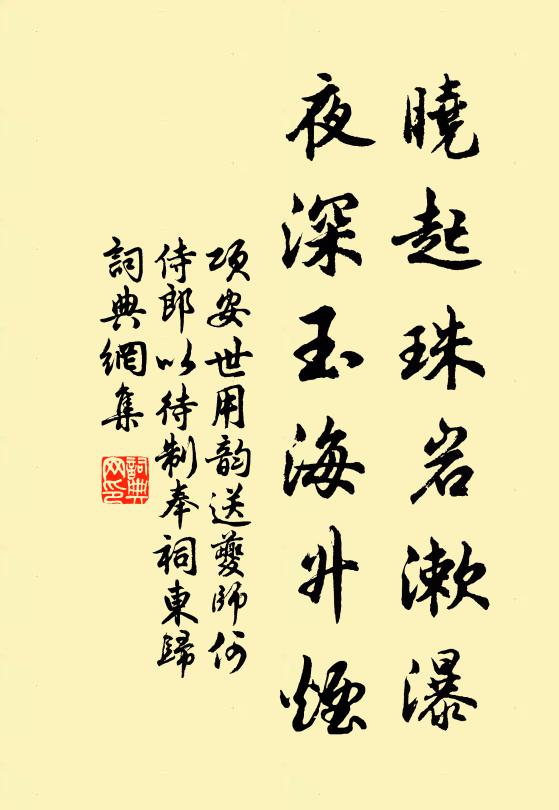 曉起珠岩漱瀑
夜深玉海升煙
項安世用韵送夔師何
侍郎以待制奉祠東歸
詞典網集
詞典
网印